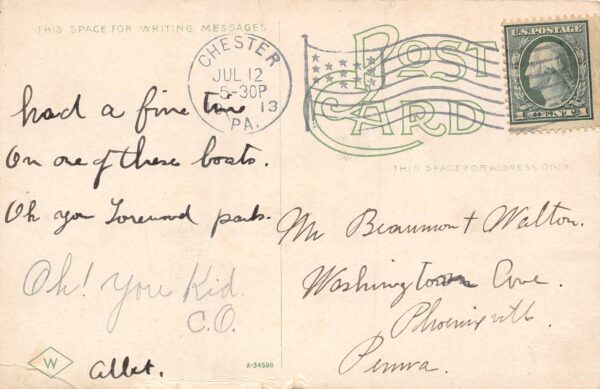 THIS SPACE FOR WRITING MESSAGES
CHESTER
JUL 12
5-30P
13
PA.
POST
CARD
U.S. POSTAGE
1 CENT 1
THIS SPACE FOR ADDRESS ONLY
had a fine time
On one of these boats.
Oh you park.
Oh! You Kid.
C.O.
Mr Beaumont Walton.
Washington Ave.
Phoenixville.
Penna.
W
A-34598